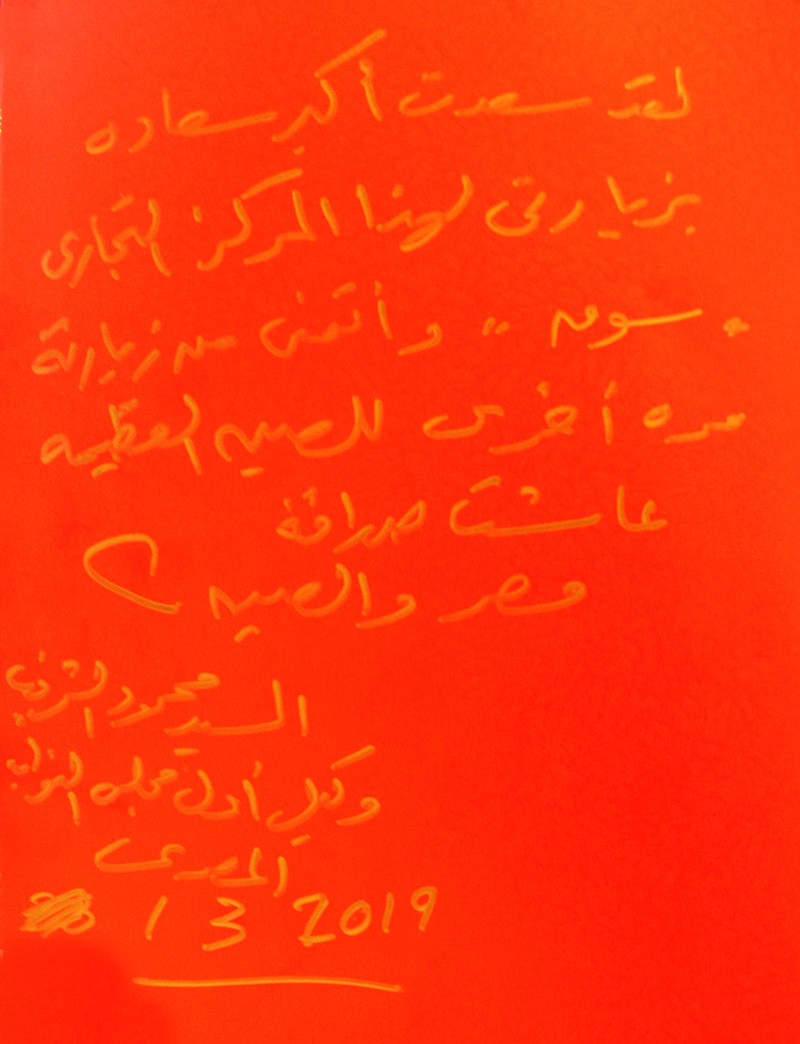 لقد سعدت أكبر سعاده
بزيارتى لهذا المركز التجارى
سوسه ,, وأتمنى من زيارته
مره أخرى للصين العظيمه
عاشت صداقة
مصر والصين
السيد محمود الشريف
وكيل أول مجلس النواب
المصرى
1 3 2019